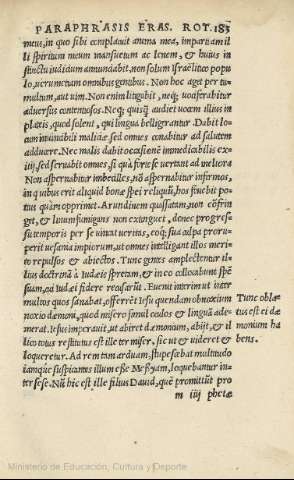 PARAPHRASIS ERAS. ROT. 183
meus, in quo sibi complacuit anima mea, impartiam il
li spiritum meum mansuetum ac lenem, & huius in
stinctu iudicium annunciabit, non solum israëlitico popu
lo, uerumetiam omnibus gentibus. Non hoc aget per tu-
multum, aut uim. Non enim litigabit, neq; uociferabitur
aduersus contentiosos. Necq; quisq̃ audiet uocem illius in
plateis, quod solent, qui lingua belligerantur. Dabit lo-
cum inuincibili maliciæ, sed omnes conabitur ad salutem
adducere. Nec malis dabit occasionẽ immedicabilis ex-
itij, sed seruabit omnes, si quà forte se uertant ad meliora
Non aspernabitur imbecilles, nõ aspernabitur infirmos,
in quibus erit aliquid bonæ spei reliquũ, hos fouebit po-
tius quàm opprimet. Arundinem quassatam, non cõfrin
get, & linum fumigans non extinguet, donec progres-
su temporis per se uincat ueritas, coq; sua culpa proru-
perit uesania impiorum, ut omnes intelligant illos meri-
to repulsos & abiectos. Tunc gentes amplectentur il-
lius doctrinã à Iudæis spretam, & in eo collocabunt spẽ
suam, cui Iudæi fidere recusarũt. Euenit interim ut inter
multos quos sanabat, offerrẽt Iesu quendam obnoxium
noxio dæmoni, quod misero simul oculos & linguã ade-
merat. Iesus imperauit, ut abiret dæmonium, abijt, & il
lico totus restitutus est ille ter miser, sic ut & uideret &
loqueretur. Ad rem tam arduam, stupescebat multitudo
iamque suspicantes illum esse Messyam, loquebantur in-
ter sese. Nũ hic est ille filius Dauid, quẽ promittũt pro
m iij phetæ
Tunc obla-
tus est ei dæ
monium ha
bens.
Ministerio de Educación, Cultura y Deporte